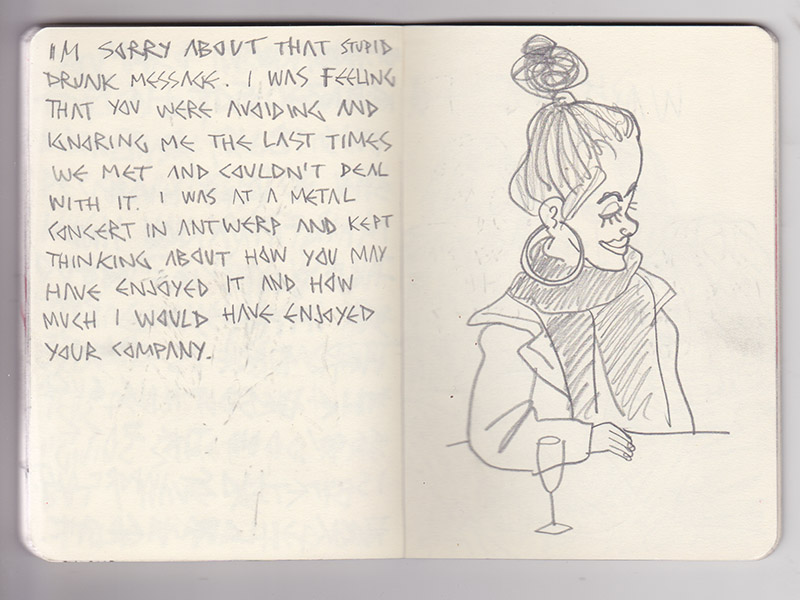 IM SORRY ABOUT THAT STUPID
DRUNK MESSAGE. I WAS FEELING
THAT YOU WERE AVOIDING AND
IGNORING ME THE LAST TIMES
WE MET AND COULDN'T DEAL
WITH IT. I WAS AT A METAL
CONCERT IN ANTWERP AND KEPT
THINKING ABOUT HOW YOU MAY
HAVE ENJOYED IT AND HOW
MUCH I WOULD HAVE ENJOYED
YOUR COMPANY.